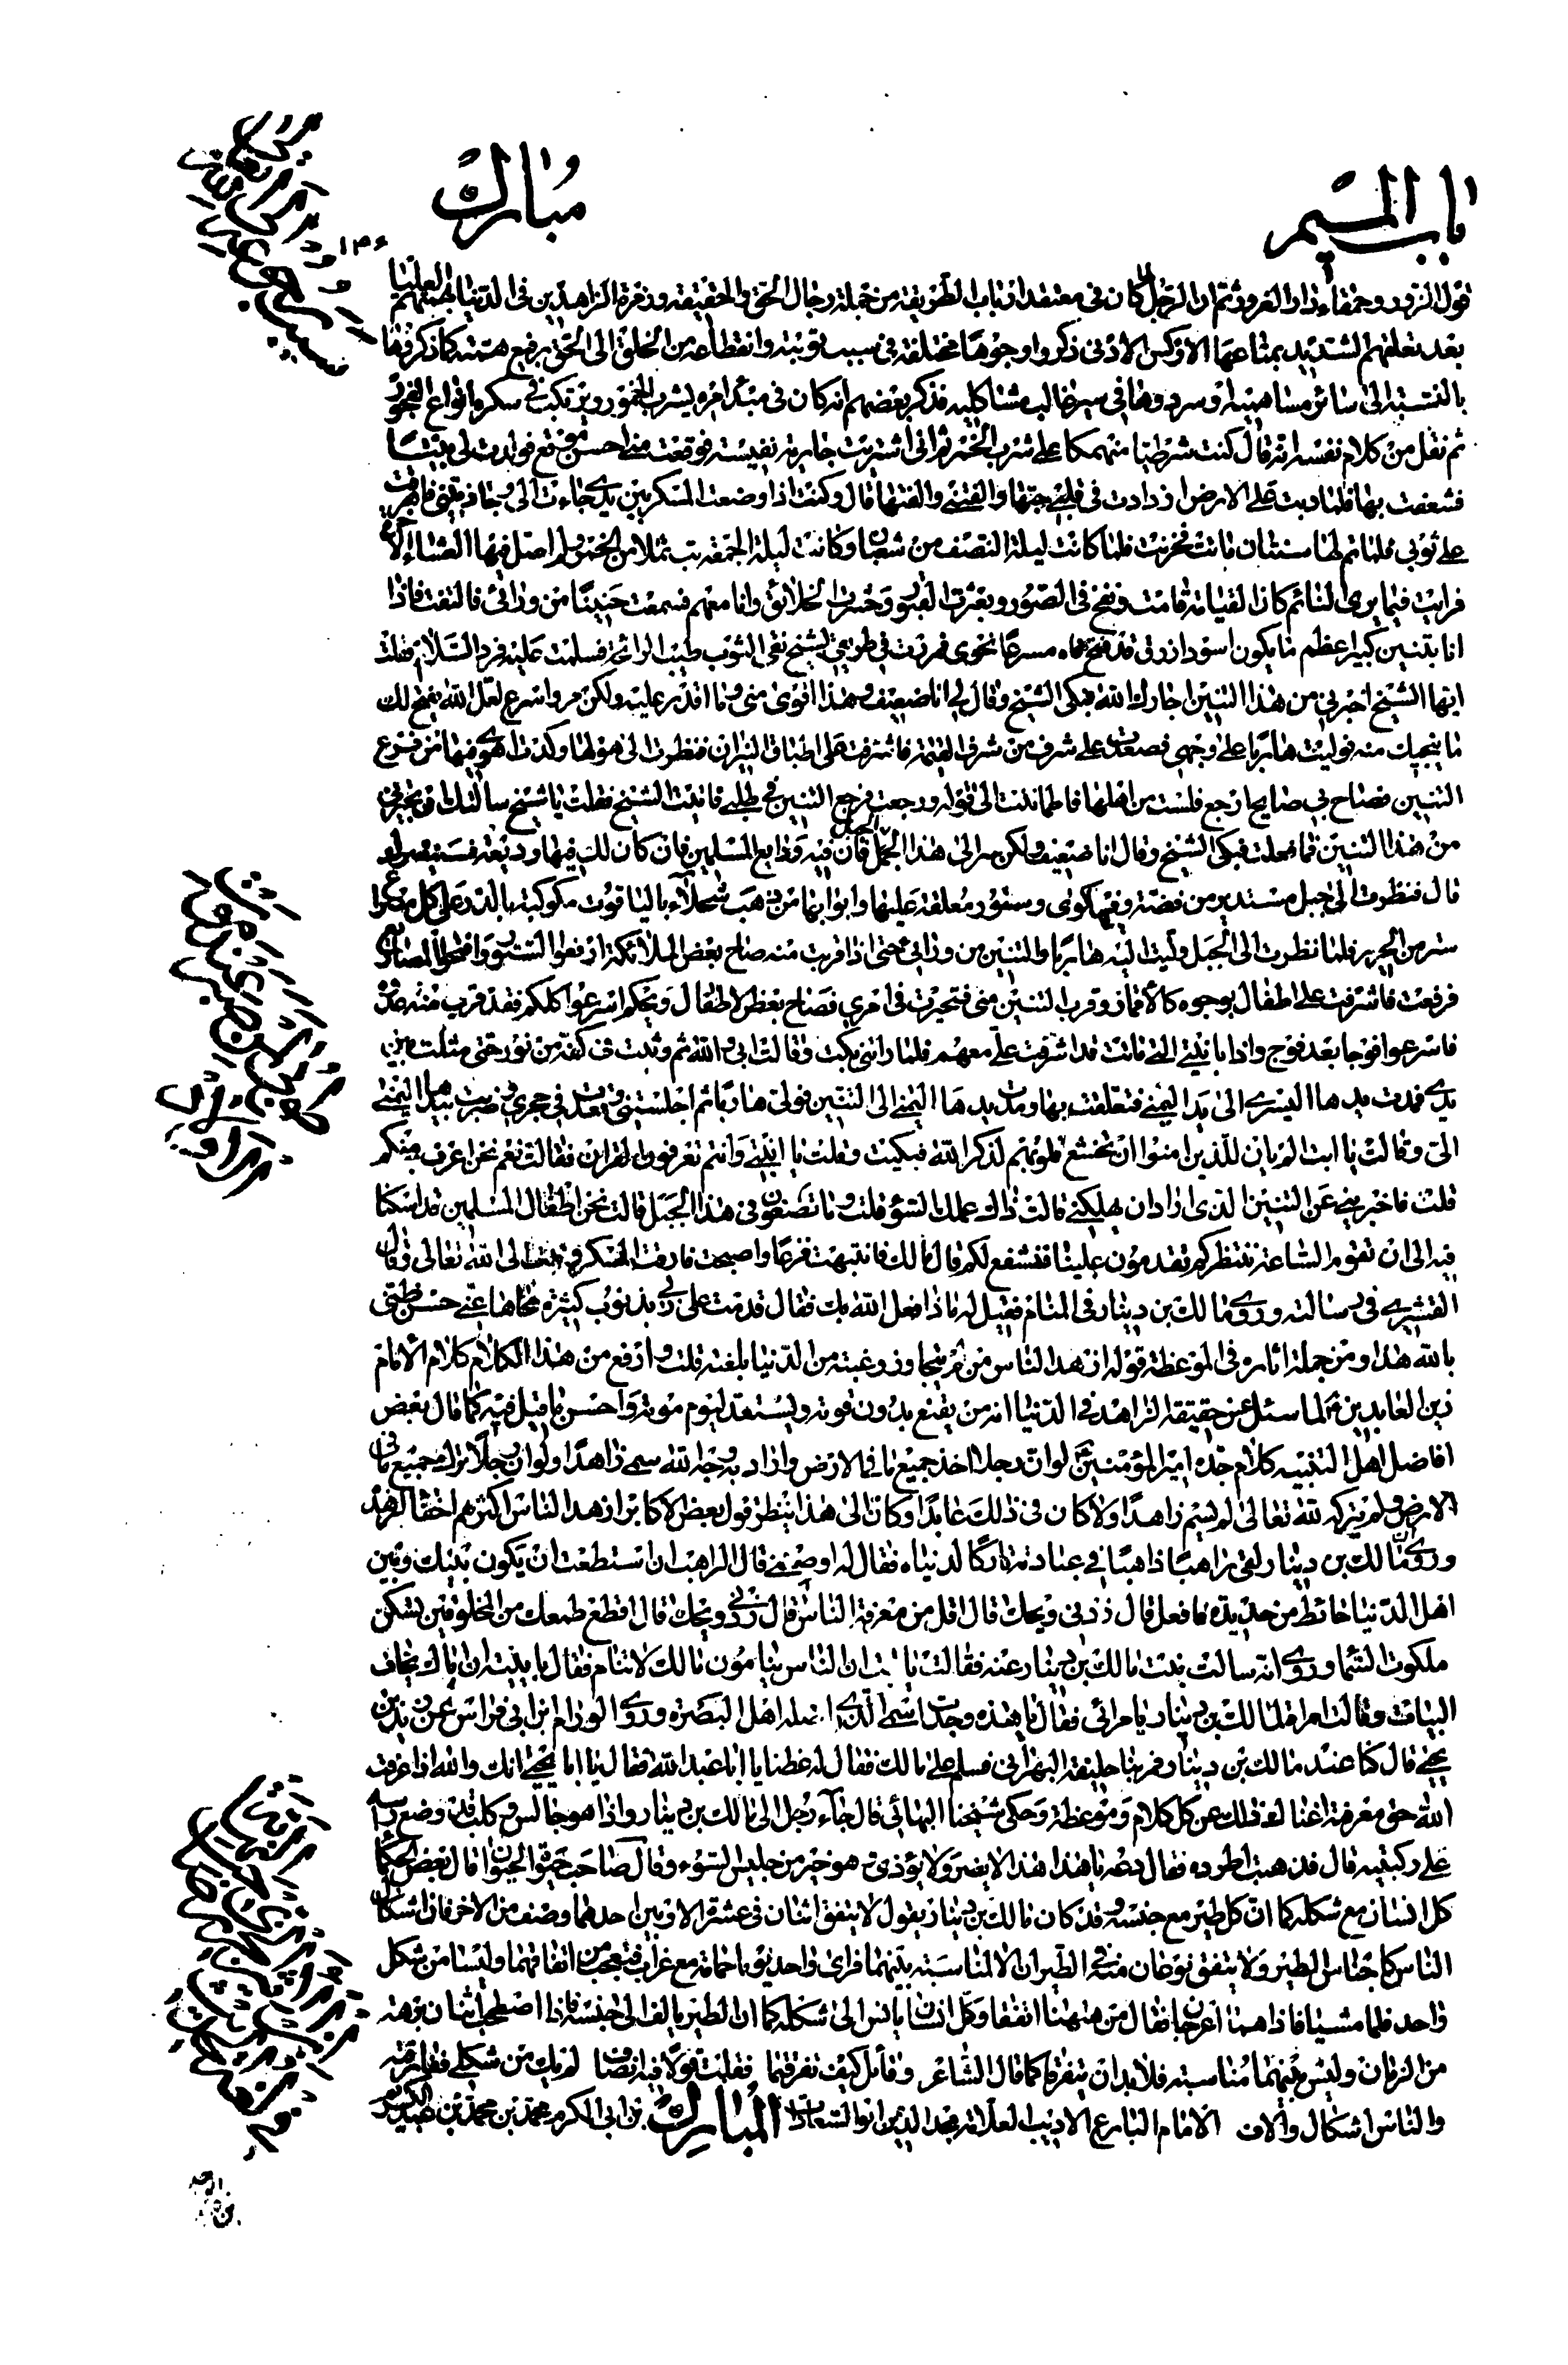 باب الميم
مبارك
قول الزور وحمقاء دار الغرور ثم ان الرجل كان في معتقد ارباب الطريقه من جملة رجال الحق والحقيقه وزمرة الزاهدين في الدنيا بهمتهم العليا
بعد تعلقهم الشديد بمتاعها الاوكس الادنى ذكروا وجوها مختلفة في سبب توبته وانقطاعه من الخلق الى الحق برفيع همته كما ذكروها
بالنسبة الى سائر مشاهيه او سردوها في سير غالب مشاكليه فذكر بعضهم انه كان في مبدء امره يشرب الخمور ويرتكب في سكره انواع الفجور
ثم نقل من كلام نفسه انه قال كنت شرطيا منهمكا على شرب الخمر ثم اني اشتريت جارية نفيسة فوقعت مني احسن موقع فولدت لي بنتا
فشعفت بها فلما دبت على الارض ازدادت في قلبي حبها والفتني والفتها قال وكنت اذا وضعت المسكر بين يدي جاءت الي وجاذبتني فاهرقت
على ثوبي فلما تم لها سنتان ماتت فحزنت فلما كانت ليلة النصف من شعبان وكانت ليلة الجمعة بت ثملا من الخمر ولم اصل فيها العشاء الآخرة
فرايت فيما يرى النائم كان القيامة قامت ونفخ في الصور وبعثرت القبور وحشرت الخلائق وانا معهم فسمعت حنينا من ورائي فالتفت فاذا
انا بتنين كبير اعظم ما يكون اسود ازرق قد فتح فاه مسرعا نحوي فمررت في طريقي بشيخ نقي الثوب طيب الرائحة فسلمت عليه فرد السلام فقلت
ايها الشيخ اجرني من هذا التنين اجارك الله فبكى الشيخ وقال لي انا ضعيف وهذا اقوى مني وما اقدر عليه ولكن مر واسرع لعل الله يفتح لك
ما ينجيك منه فوليت هاربا على وجهي فصعدت على شرف من شرف القيمة فاشرفت على اطباق النيران فنظرت الى هولها وكدت اهوي فيها من فزع
التنين فصاح بي صايح ارجع فلست من اهلها فاطماننت الى قوله ورجعت فرجع التنين في طلبي فاتيت الشيخ فقلت يا شيخ سالتك ان تجيرني
من هذا التنين فما فعلت فبكى الشيخ وقال انا ضعيف ولكن سر الى هذا الجبل فان فيه ودايع المسلمين فان كان لك فيها وديعة فستنصرك
قال فنظرت الى جبل مستدير من فضة وفيها كوى وستور معلقة عليها وابوابها من ذهب بالياقوت مكوكبة بالدر على كل مصراع
ستر من الحرير فلما نظرت الى الجبل وليت اليه هاربا والتنين من ورائي حتى اذا قربت منه صاح بعض الملائكة ارفعوا الستور وافتحوا المصاريع
فرفعت فاشرفت على اطفال بوجوه كالاقمار وقرب التنين مني فتحيرت في امري فصاح بعض الاطفال ويحكم اسرعوا كلكم فقد قرب منه عدوه
فاسرعوا فوجا بعد فوج واذا بابنتي التي ماتت قد اشرفت علي معهم فلما راتني بكت وقالت ابي والله ثم وثبت في كفة من نور حتى مثلت بين
يدي فمدت يدها اليسرى الى يدي اليمنى فتعلقت بها ومدت يدها اليمنى الى التنين فولى هاربا ثم اجلستني وقعدت في حجري وضربت بيدها اليمنى
الى وقالت يا ابت الم يان للذين امنوا ان تخشع قلوبهم لذكر الله فبكيت وقلت يا ابنتي وانتم تعرفون القران فقالت نعم نحن اعرف به منكم
قلت فاخبريني عن التنين الذي اراد ان يهلكني قالت ذاك عملك السوء قلت وما تصنعون في هذا الجبل قالت نحن اطفال المسلمين قد اسكنا
فيه الى ان تقوم الساعة ننتظركم تقدمون علينا فنشفع لكم قال مالك فانتبهت فزعا واصبحت فارقت المسكر وتبت الى الله تعالى وقال
القشيري في رسالته وروي مالك بن دينار في المنام فقيل له ماذا فعل الله بك فقال قدمت على ربي بذنوب كثيرة محاها عني حسن ظني
بالله هذا ومن جملة اثاره في الموعظة قوله ازهد الناس من لم يتجاوز رغبته من الدنيا بلغته قلت وارفع من هذا الكلام كلام الامام
زين العابدين لما سئل عن حقيقة الزاهد في الدنيا انه من يقنع بدون قوته ويستعد ليوم موته واحسن ما قيل فيه كما قال بعض
افاضل اهل التنبيه كلام جده امير المؤمنين لو ان رجلا اخذ جميع ما في الارض واراد به وجه الله سمي زاهدا ولو ان رجلا ترك جميع ما في
الارض ولم يتركه لله تعالى لم يسم زاهدا ولا كان في ذلك عابدا وكان الى هذا ينظر قول بعض الاكابر ازهد الناس اكثرهم اخفاء لزهد
وروي ان مالك بن دينار لقي راهبا ذاهبا في عبادته تاركا لدنياه فقال له اوصني قال الراهب ان استطعت ان يكون بينك وبين
اهل الدنيا حائط من حديد فافعل قال زدني ويحك قال اقل من معرفة الناس قال زدني ويحك قال اقطع طمعك من المخلوقين تسكن
ملكوت السما وروي انه سالت بنت مالك بن دينار عنه فقالت يا ابت ان الناس ينامون مالك لا تنام فقال يا بنيت ان اباك يخاف
البيات وقالت امراة لمالك بن دينار يا مرائي فقال يا هذه وجدت اسمي الذي اضله اهل البصرة وروى الورام ابن ابي فراس عن يزيد بن
قال كنا عند مالك بن دينار فمر بنا خليفة البهراني فسلم على مالك فقال له عظنا يا ابا عبد الله فقال يا ابا يحيى انك والله اذا عرفت
الله حق معرفته اغناك ذلك عن كل كلام وموعظة وحكى شيخنا البهائي قال جاء رجل الى مالك بن دينار واذا هو جالس وكلب قد وضع راسه
على ركبتيه قال فذهبت اطرده فقال دعه يا هذا هذا لا يضر ولا يؤذي هو خير من جليس السوء وقال صاحب حيوة الحيوان قال بعض الحكما
كل انسان مع شكله كما ان كل طير مع جنسه وقد كان مالك بن دينار يقول لا يتفق اثنان في عشرة الا وبين احدهما وصف من الاخر فان اشكال
الناس كاجناس الطير ولا يتفق نوعان منه في الطيران الا لمناسبة بينهما فراى واحد يوما حمامة مع غراب فتعجب من اتفاقهما وليسا من شكل
واحد فلما مشيا فاذا هما اعرجان فقال من ههنا اتفقا وكل انسان يانس الى شكله كما ان الطير يالف الى جنسه فاذا اصطحب اثنان برهة
من الزمان وليس بينهما مناسبة فلا بد ان يتفرقا كما قال الشاعر وقائل كيف تفرقتما فقلت قولا فيه انصاف لم يك من شكلي ففارقته
والناس اشكال والاف الامام البارع الاديب العلامة مجد الدين ابو السعادات المبارك بن ابي الكرم محمد بن محمد بن عبد الكريم